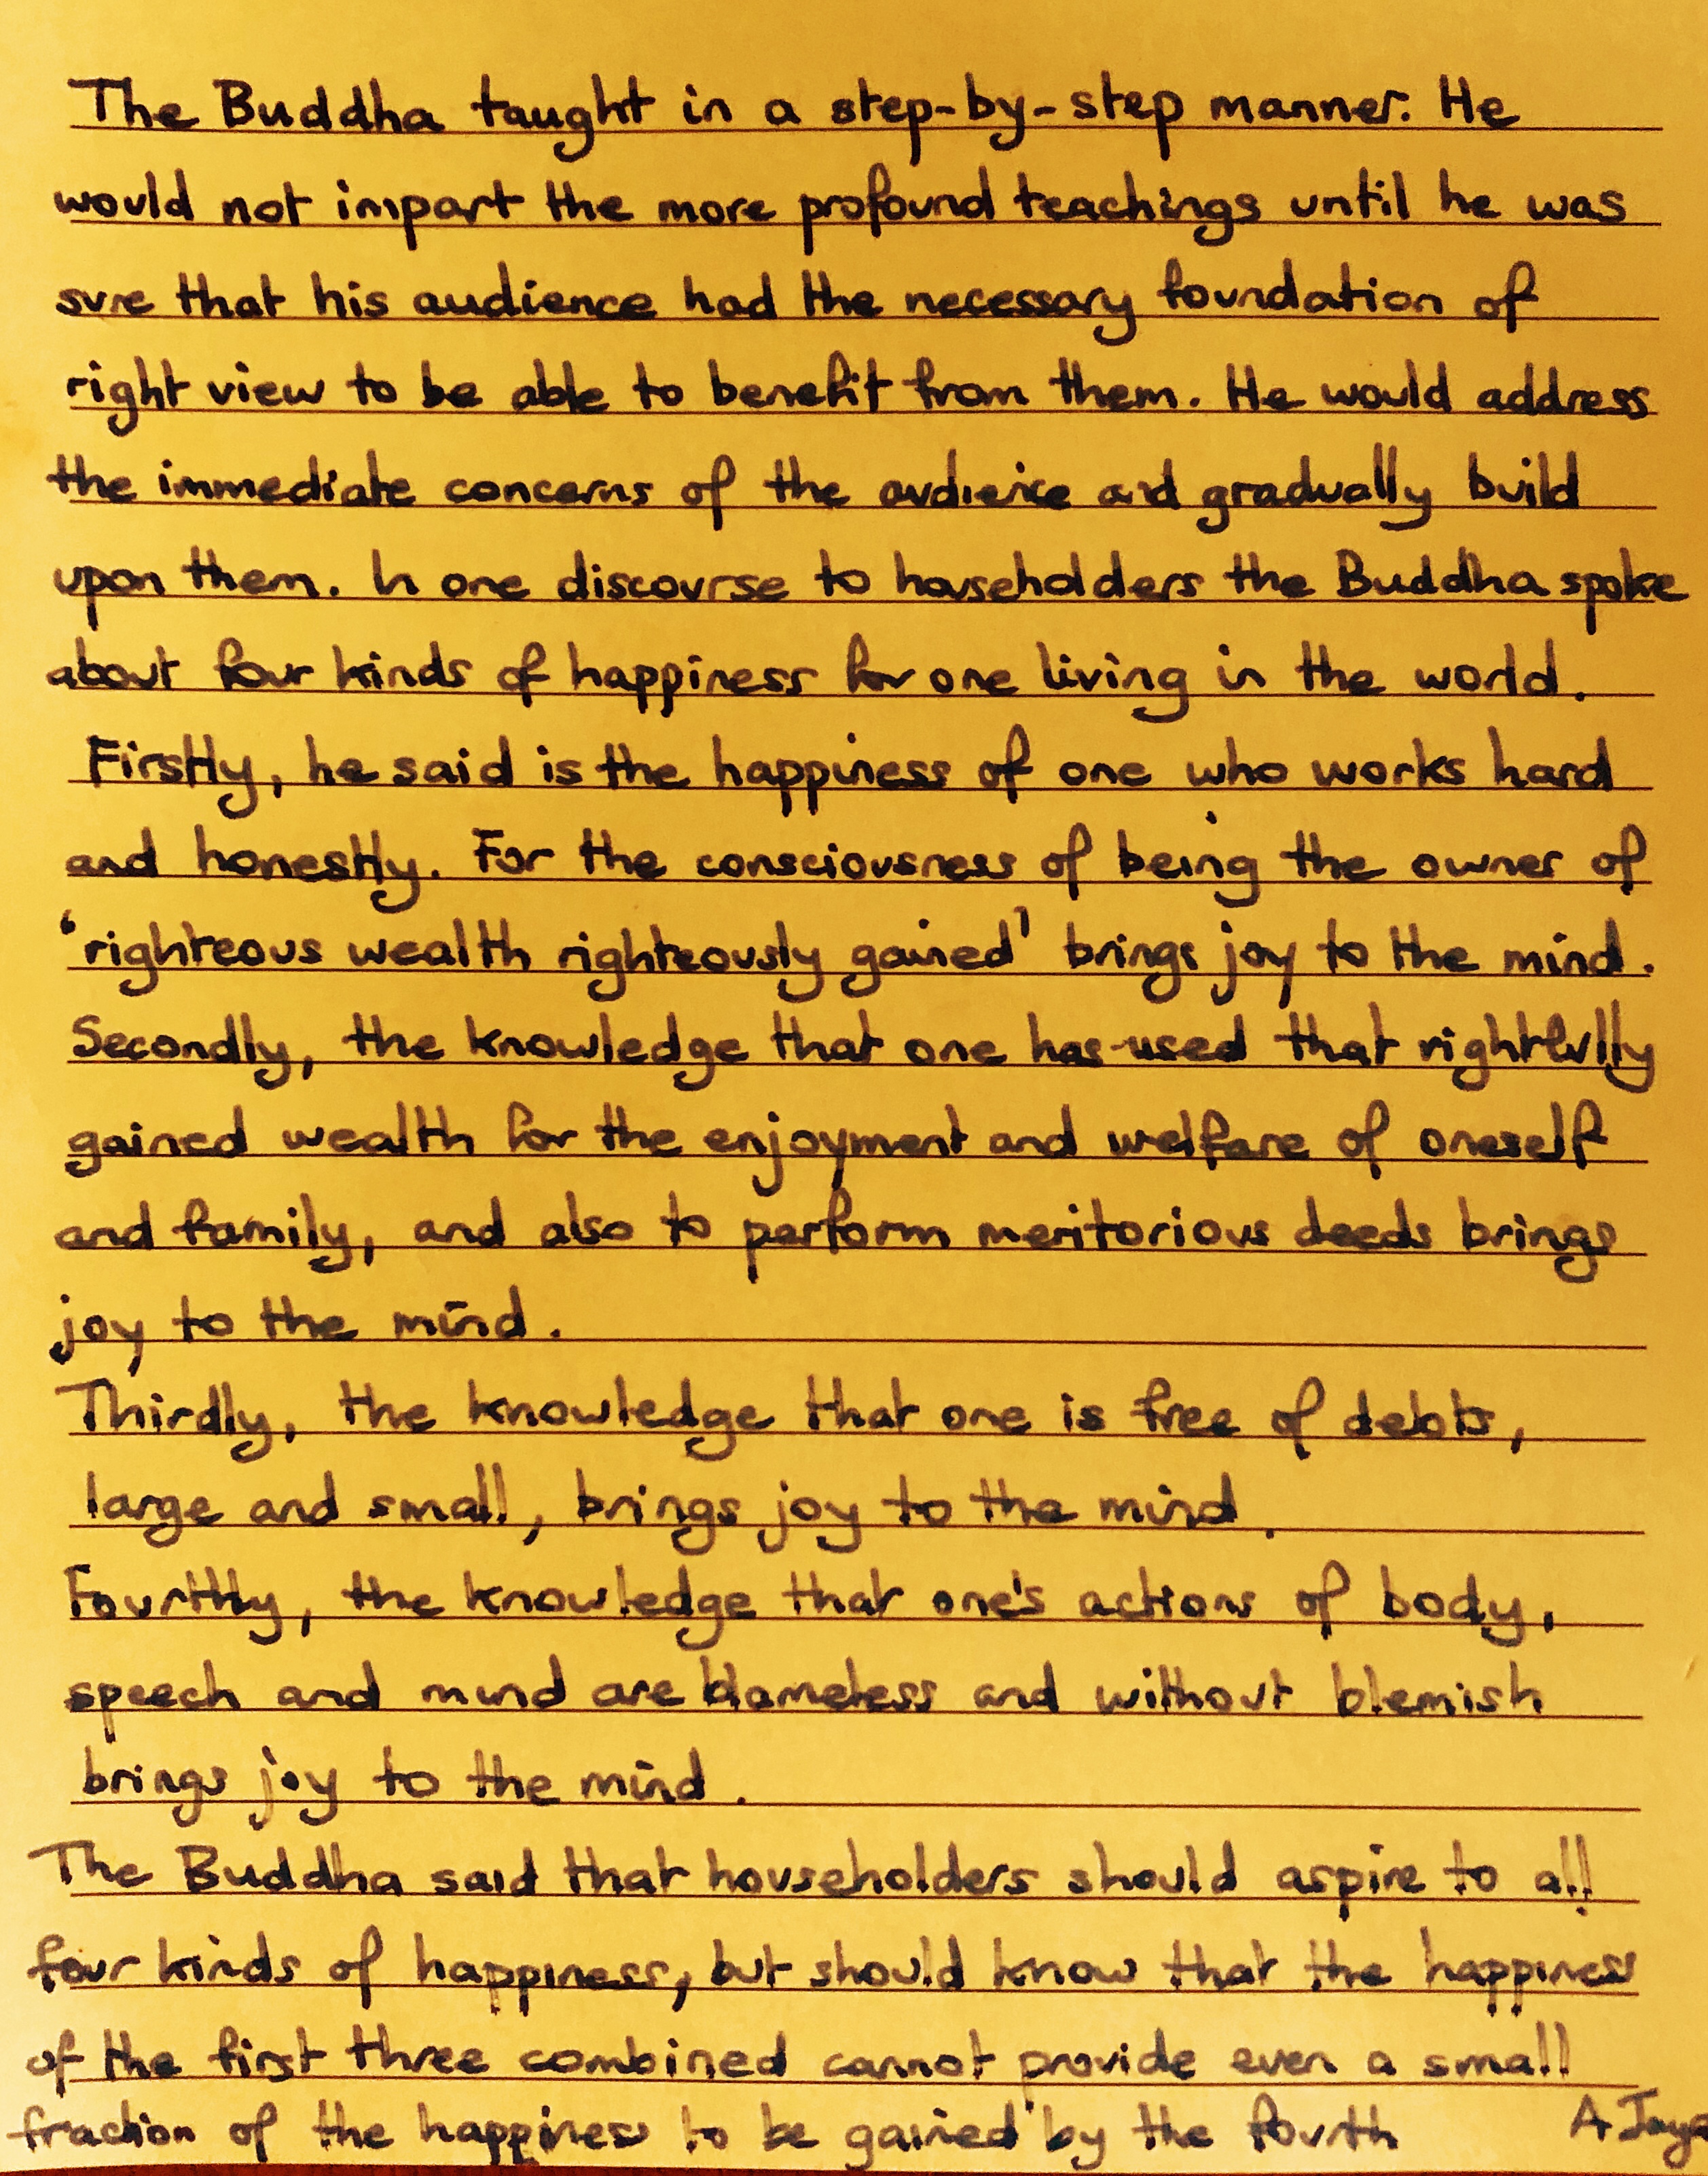 The Buddha taught in a step-by-step manner. He
would not impart the more profound teachings until he was
sure that his audience had the necessary foundation of
right view to be able to benefit from them. He would address
the immediate concerns of the audience and gradually build
upon them. In one discourse to householders the Buddha spoke
about four kinds of happiness for one living in the world.
Firstly, he said is the happiness of one who works hard
and honestly. For the consciousness of being the owner of
'righteous wealth righteously gained' brings joy to the mind.
Secondly, the knowledge that one has used that rightfully
gained wealth for the enjoyment and welfare of oneself
and family, and also to perform meritorious deeds brings
joy to the mind.
Thirdly, the knowledge that one is free of debts,
large and small, brings joy to the mind.
Fourthly, the knowledge that one's actions of body,
speech and mind are blameless and without blemish
brings joy to the mind.
The Buddha said that householders should aspire to all
four kinds of happiness, but should know that the happiness
of the first three combined cannot provide even a small
fraction of the happiness to be gained by the fourth A Jaya